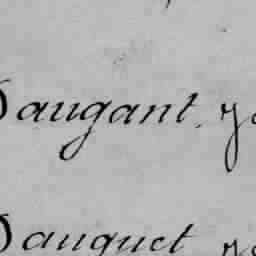 Daugant. y
Dauquet y